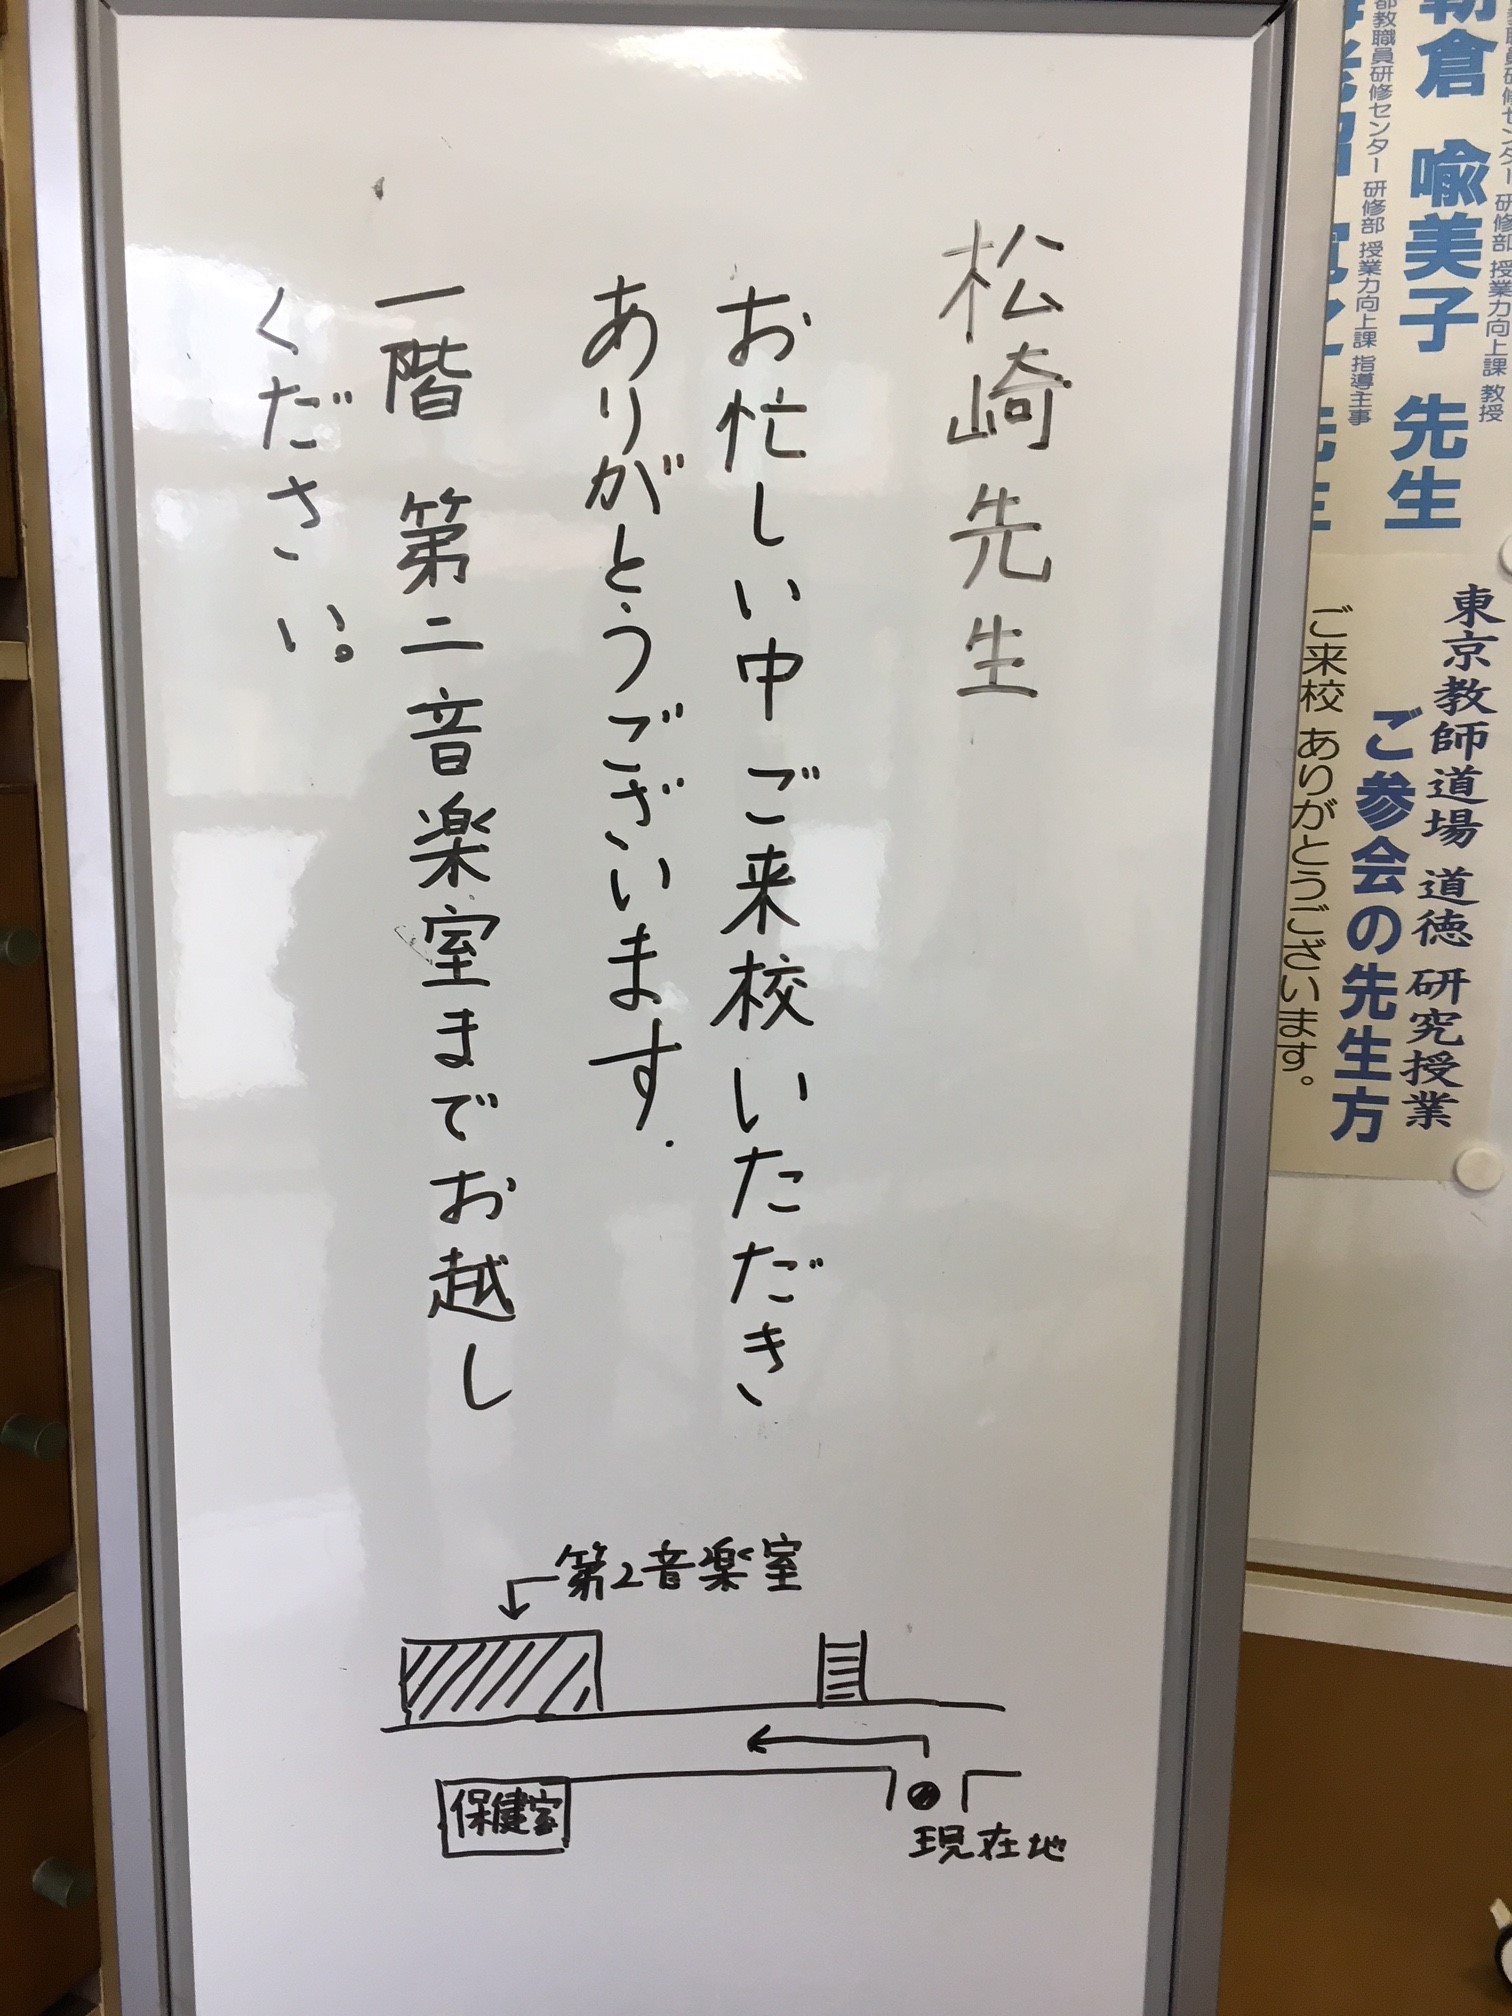 松崎先生
お忙しい中ご来校いただき
ありがとうございます.
一階 第二音楽室までお越し
ください。
第2音楽室
保健室
現在地
教職員研修センター 研修部 授業力向上課 教授
朝倉 喩美子 先生
都教職員研修センター 研修部 授業力向上課 指導主事
先生
東京教師道場 道徳 研究授業
ご参会の先生方
ご来校 ありがとうございます。